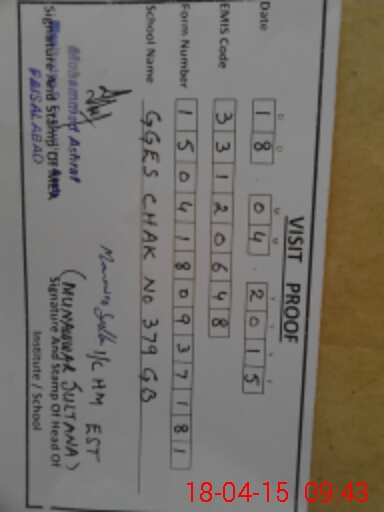 VISIT PROOF
Date 18 . 04 . 2015
D D M M Y Y Y Y
EMIS Code 33120648
Form Number 1504180937181
School Name GGES CHAK No 379 GB
Mohammad Ashraf
Signature And Stamp Of
FAISALABAD
I/C HM EST
(MUNAWAR SULTANA)
Signature And Stamp Of Head Of
Institute / School
18-04-15 09:43